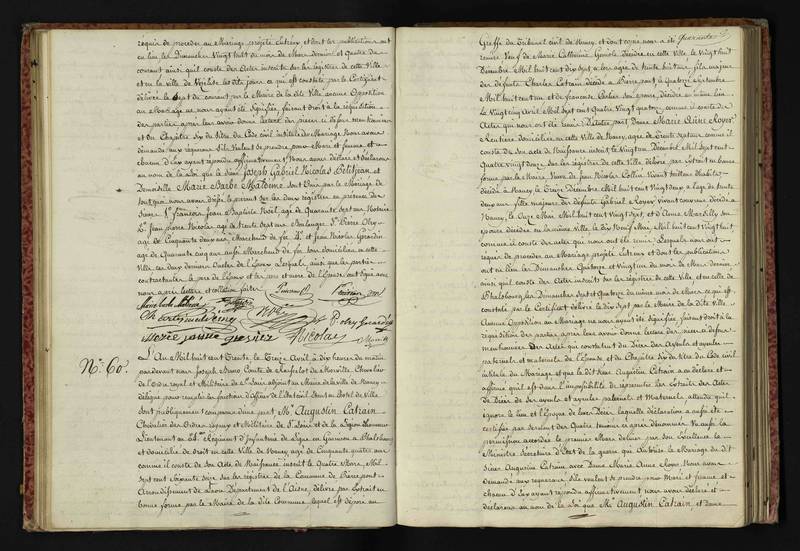 requis de procéder au Mariage projeté entr'eux et dont les publications ont
eu lieu les Dimanches Vingt huit du mois de Mars dernier et Quatre du
courant ainsi qu'il conste des Actes inscrits sur les registres de cette Ville
et en la Ville de les dits jours ce qui est constaté par le Certificat
délivré le Sept du courant par le Maire de la dite Ville aucune Opposition
au Mariage ne nous ayant été signifiée, faisant droit à la réquisition
des parties après leur avoir donné lecture des pièces ci dessus mentionnées
et du Chapitre Six du titre du Code civil intitulé du Mariage Nous avons
demandé aux requérans s'ils Veulent se prendre pour Mari et femme et
chacun d'eux ayant répondu affirmativement Nous avons déclaré et déclarons
au nom de la Loi que le Sieur Joseph Gabriel Nicolas Petitjean et
Demoiselle Marie Barbe Maldemé sont Unis par le Mariage de
tout quoi nous avons dressé le présent sur les deux registres en présence des
Sieurs 1° François Jean Baptiste Noël, âgé de Quarante Sept ans Notaire
2° Jean Pierre Nicolas âgé de trente Sept ans Boulanger 3° Pierre Olry
âgé de Cinquante deux ans, Marchand de fer 4° et Jean Nicolas Girardin
âgé de Quarante cinq ans aussi Marchand de fer tous domiciliés en cette
Ville, les deux derniers Oncles de l'Epoux Lesquels, ainsi que les parties
contractantes le père de l'époux et les père et mère de l'Epouse, ont signé avec
nous après lecture et collation faites.
Nicolas
N°. 60.
L'An Mil huit cent Trente le Treize Avril à dix heures du matin
pardevant nous Joseph Anne Comte de Morville, Chevalier
de l'Ordre royal et Militaire de St Louis adjoint au Maire de la ville de Nancy
délégué pour remplir les fonctions d'Officier de l'Etat civil Sont en l'hôtel de Ville
Sont publiquement comparus d'une part Mr. Augustin Catrain
Chevalier des Ordres royaux et Militaire de St Louis et de la Légion d'honneur
Lieutenant au Régiment d'Infanterie de Ligne en Garnison à Phalsbourg
et domicilié de droit en cette Ville de Nancy âgé de Cinquante quatre ans
comme il conste de son Acte de Naissance inscrit le Quatre Mars, Mil
sept cent Soixante Seize sur les registres de la Commune de Pierrepont
Arrondissement de Laon Département de l'Aisne, délivré par Extrait en
bonne forme par le Maire de la dite Commune lequel est déposé au
Greffe du Tribunal civil de Nancy, et dont copie nous a été
remise Veuf de Marie Catherine Décédée en cette Ville le Vingt huit
Décembre Mil huit cent dix Sept à l'age de trente huit ans, fils majeur
des défunts Charles Catrain Décédé à Pierrepont le Quatorze Septembre
Mil huit cent un et de françoise son épouse, décédée au même lieu
le Vingt cinq Avril Mil Sept cent Quatre Vingt quatorze, comme il conste des
Actes qui nous ont été remis D'autre part Dame Marie Anne Royer
Rentière domiciliée en cette Ville de Nancy, âgée de Trente Sept ans comme il
conste de son Acte de Naissance inscrit le Vingt un Décembre Mil Sept cent
Quatre vingt douze sur les registres de cette Ville délivré par extrait en bonne
forme par le Maire, Veuve de Jean Nicolas Collin, Vivant
Décédé à Nancy le Treize Décembre Mil huit cent Vingt deux à l'age de trente
deux ans fille majeure des défunts Gabriel Royer, Vivant couvreur décédé à
Nancy, le Onze Mai, Mil huit cent Vingt Sept, et d'Anne son
épouse décédée en la même Ville, le Dix Neuf Mai, Mil huit cent Vingt huit,
comme il conste des actes qui nous ont été remis Lesquels nous ont
requis de procéder au Mariage projeté entr'eux et dont les publications
ont eu lieu les Dimanches Quatorze et Vingt un du mois de Mars dernier
ainsi qu'il conste des Actes inscrits sur les registres de cette Ville, et en celle de
Phalsbourg les Dimanches Sept et Quatorze du même mois de Mars ce qui est
constaté par le Certificat délivré le dix Sept par le Maire de la dite Ville
Aucune Opposition au Mariage ne nous ayant été signifiée, faisant droit à la
réquisition des parties après leur avoir donné lecture des pièces ci dessus
mentionnées des Actes qui constatent du Décès des Ayeuls et ayeules
paternels et maternels de l'Epouse et du Chapitre Six du titre du Code civil
intitulé du Mariage et que le dit Sieur Augustin Catrain a déclaré et
affirmé qu'il est dans l'impossibilité de représenter les Extraits des Actes
de Décès de ses ayeuls et ayeules paternels et Maternels attendu qu'il
ignore le lieu et l'Epoque de leurs Décès laquelle déclaration a aussi été
certifiée par serment des Quatre témoins ci après dénommés Vu aussi la
permission accordée le premier Mars dernier par son Excellence le
Ministre Secrétaire d'Etat de la guerre qui Autorise le Mariage du dit
Sieur Augustin Catrain avec Dame Marie Anne Royer Nous avons
demandé aux requérans s'ils veulent se prendre pour Mari et femme et
chacun d'eux ayant répondu affirmativement nous avons déclaré et
déclarons au nom de la Loi que Mr. Augustin Catrain et Dame